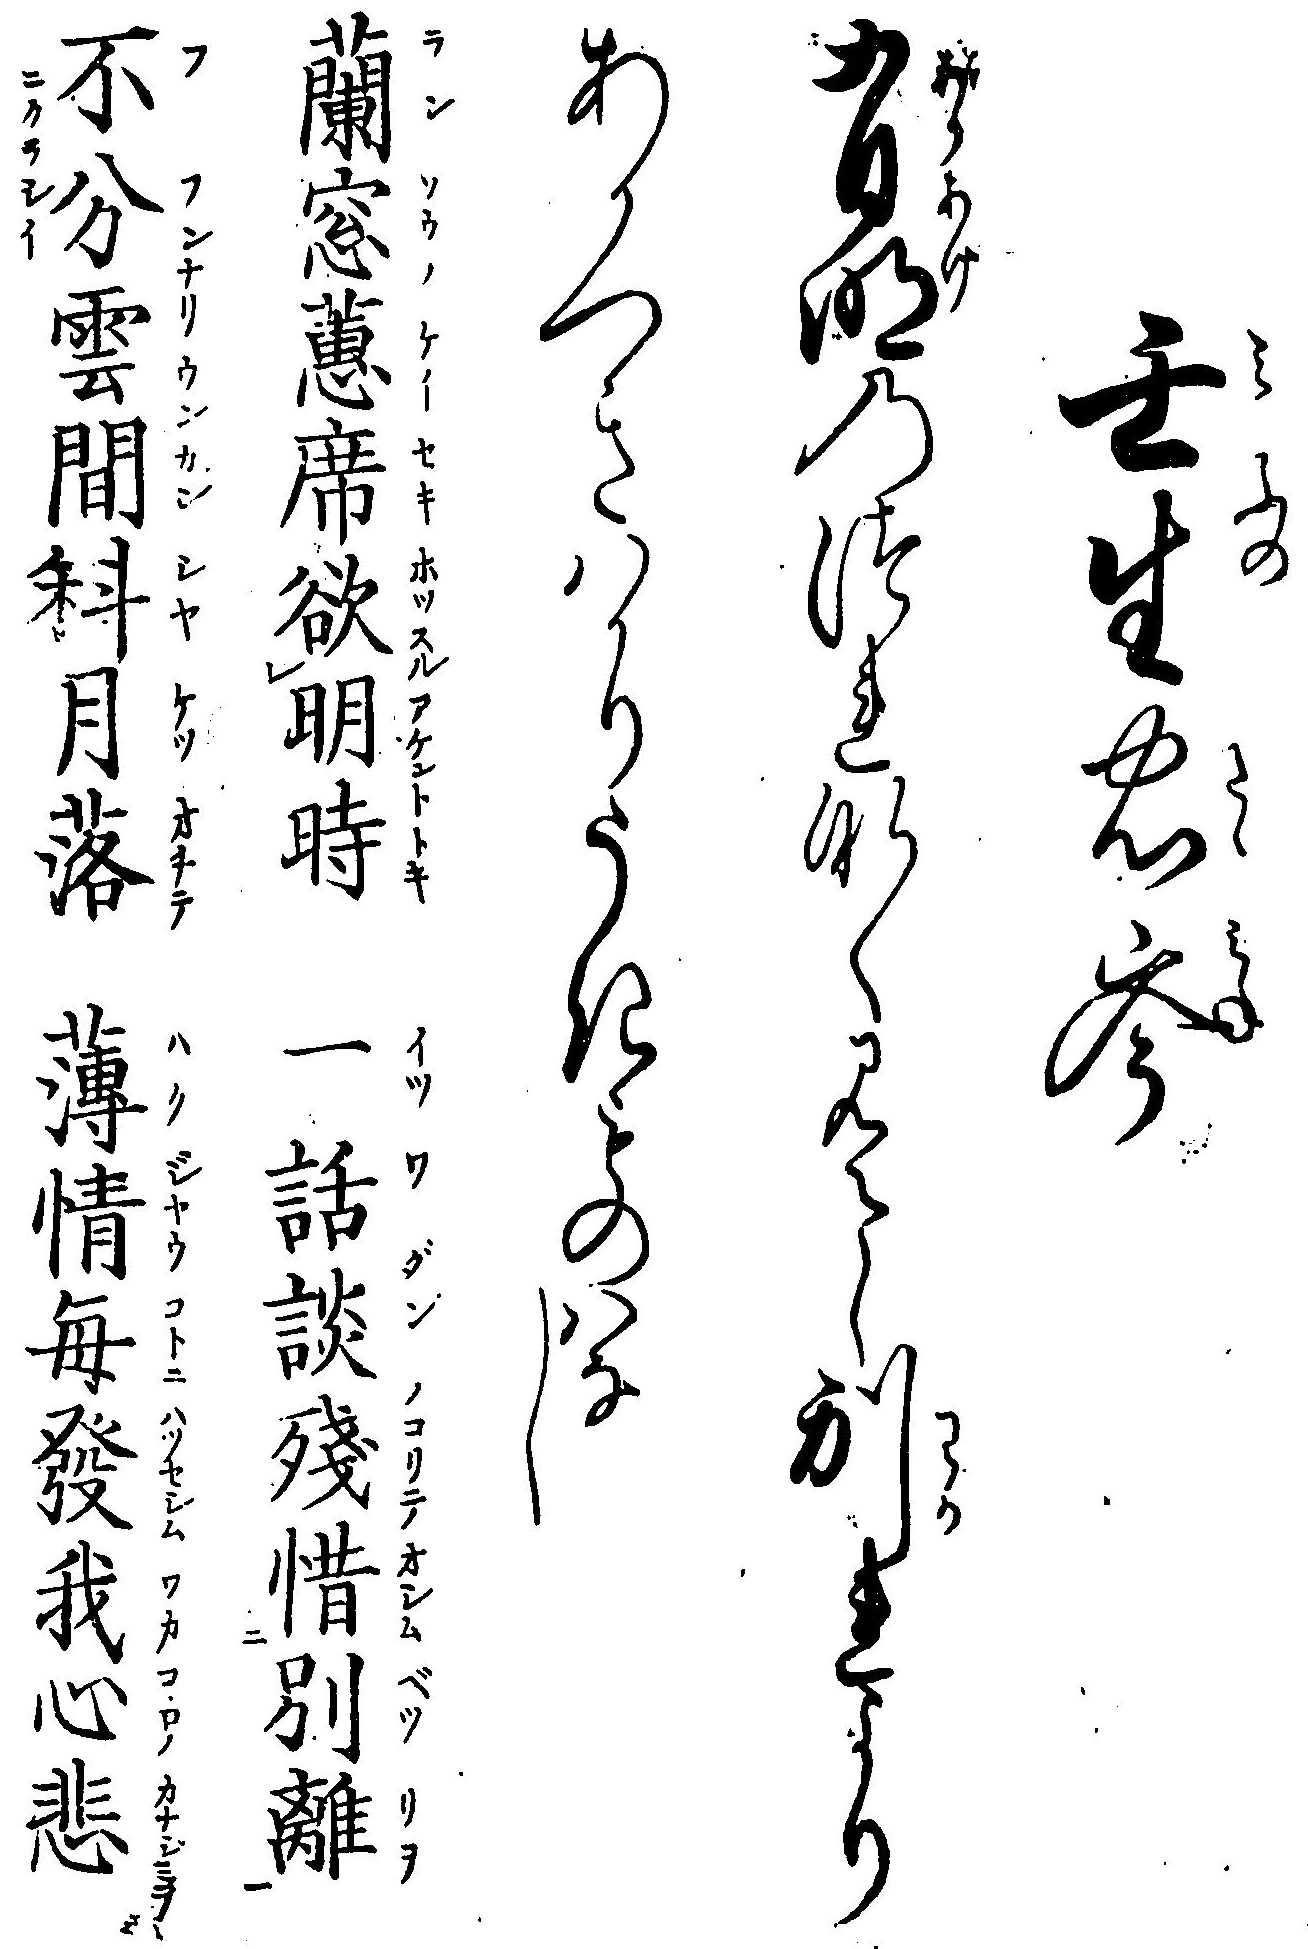 壬生忠岑
有明のつれなくみえし別れより
あかつきはかりうきものはなし
蘭窓蕙席欲明時 一話談殘惜別離
不分雲間斜月落 薄情每發我心悲